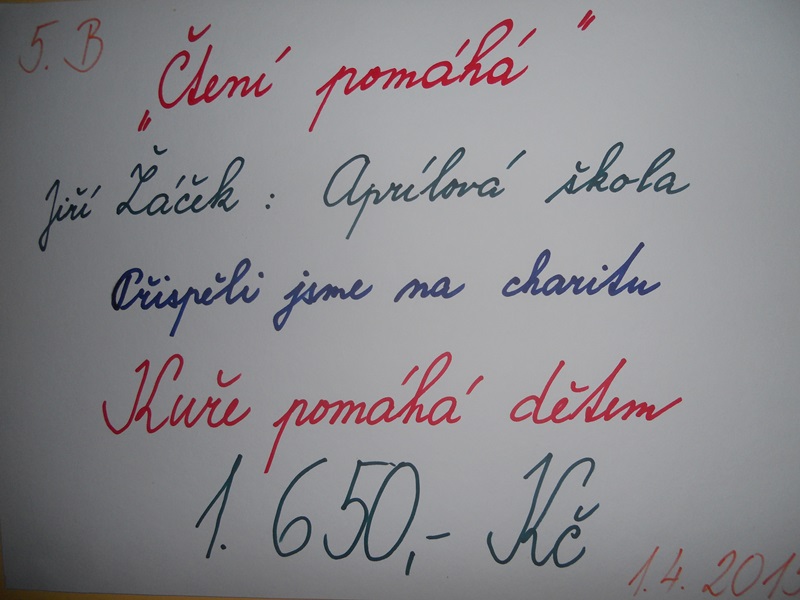 5. B
„Čtení pomáhá"
Jiří Žáček : Aprílová škola
Přispěli jsme na charitu
Kuře pomáhá dětem
1. 650,- Kč
1.4. 2015